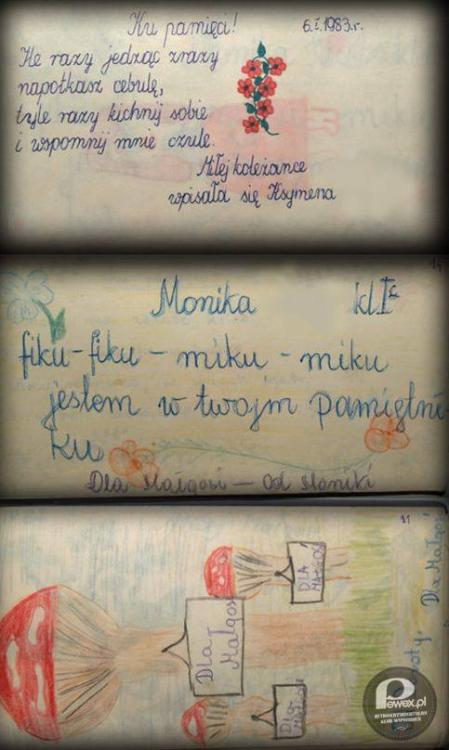 Ku pamięci! 6.I.1983.r.
Ile razy jedząc zrazy
napotkasz cebulę,
tyle razy kichnij sobie
i wspomnij mnie czule.
Miłej koleżance
wpisała się Ksymena
14
Monika kl.Ic
fiku-fiku-miku-miku
jestem w twojm pamiętni-
ku
Dla Małgosi — Od Moniki
11
DLA
MAŁGOSI
Dla
Małgosi
Dla
Dla Małgosi
Pewex.pl